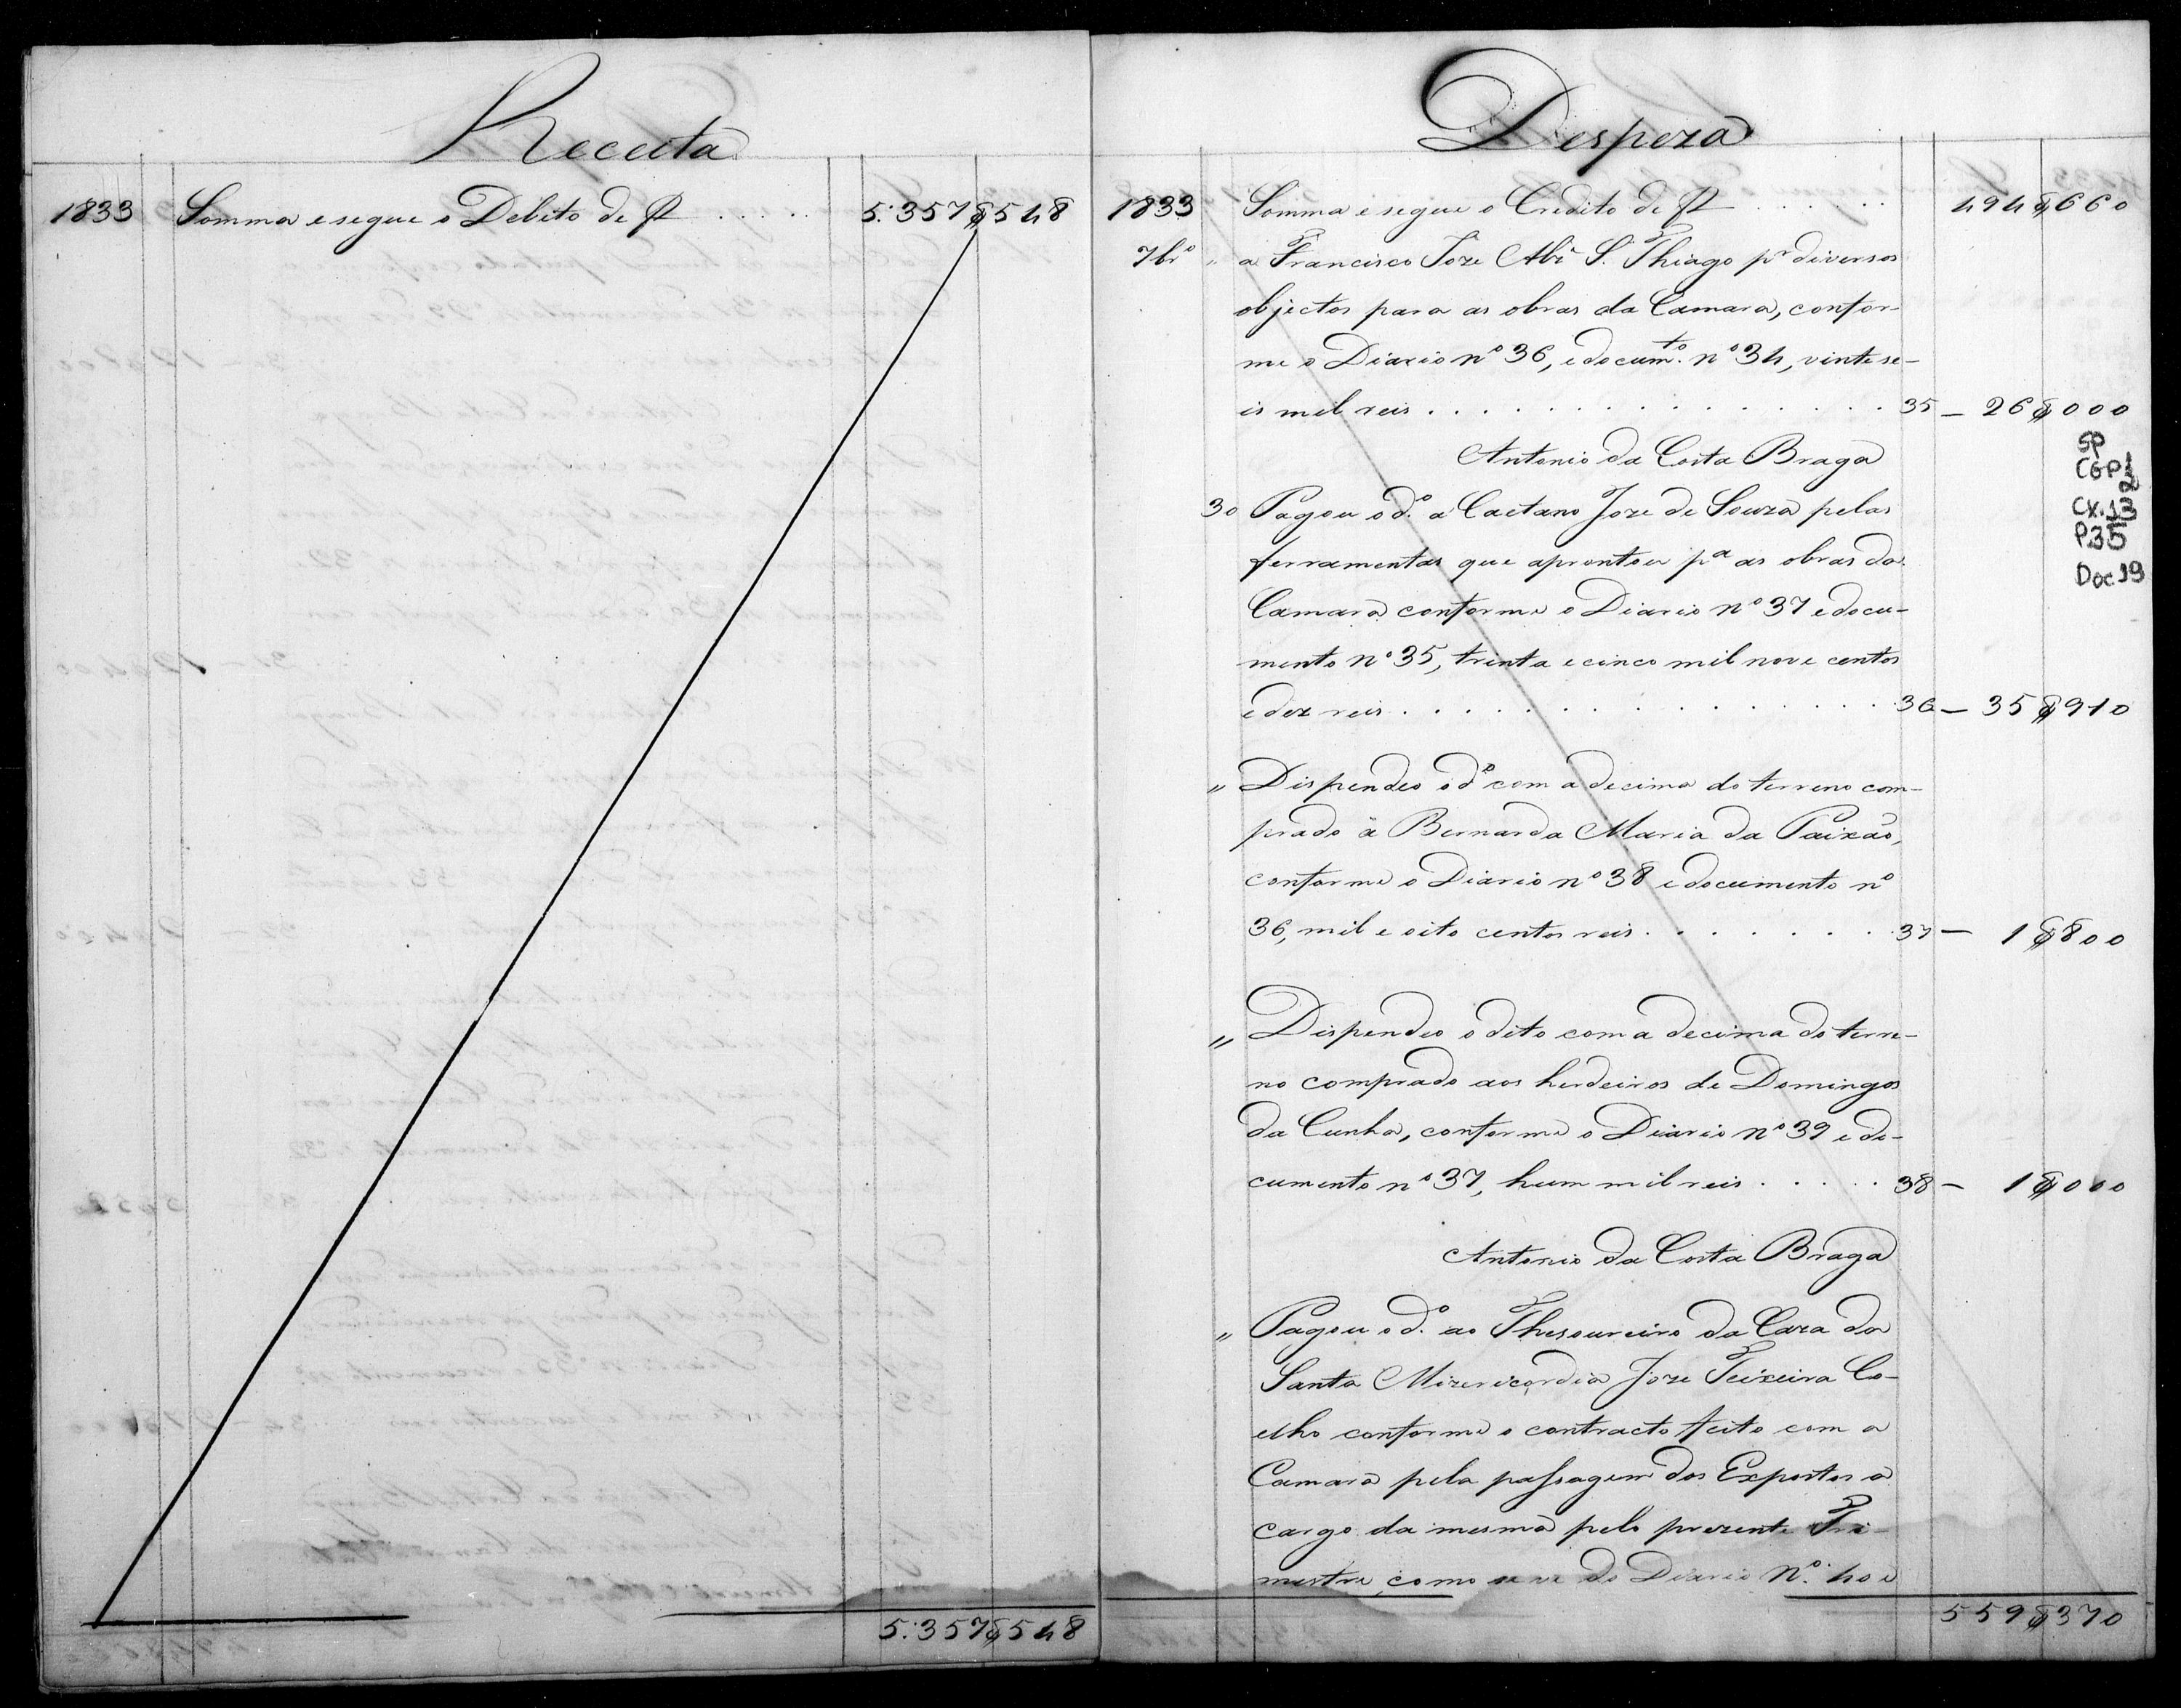 Receita
1833 Somma e segue o Debito de R ..... 5:357$548
5:357$548
Despeza
1833 Somma e segue o Credito de R ...... 494$660
7brº " a Francisco Joze S. Thiago pr diversos
objectos para as obras da Camara, confor-
me o Diario nº 36, e docum.to nº 34, vinte se-
is mil reis ................ 35 – 26$000
Antonio da Costa Braga
30 Pagou o d.º a Caetano Joze de Souza pelas
ferramentas que aprontou pª as obras da
Camara conforme o Diario nº 37 e docu-
mento nº 35, trinta e cinco mil nove centos
e dez reis ................ 36 – 35$910
" Dispendeo o dº com a decima do terreno com-
prado a Bernarda Maria da Paixão,
conforme o Diario nº 38 e documento nº
36, mil e oito centos reis ........ 37 – 1$800
" Dispendeo o dito com a decima do terre-
no comprado aos herdeiros de Domingos
da Cunha, conforme o Diario nº 39 e do-
cumento nº 37, hum mil reis ..... 38 – 1$000
Antonio da Costa Braga
" Pagou o d.º ao Thesoureiro da Caza da
Santa Mizericordia Joze Teixeira Co-
elho conforme o contracto feito com a
Camara pela passagem dos Expostos a
cargo da mesma pelo prezente Tri-
mestre, como se ve do Diario Nº. 40 e
559$370
SP
CGP1
2
CX.13
P35
Doc 19